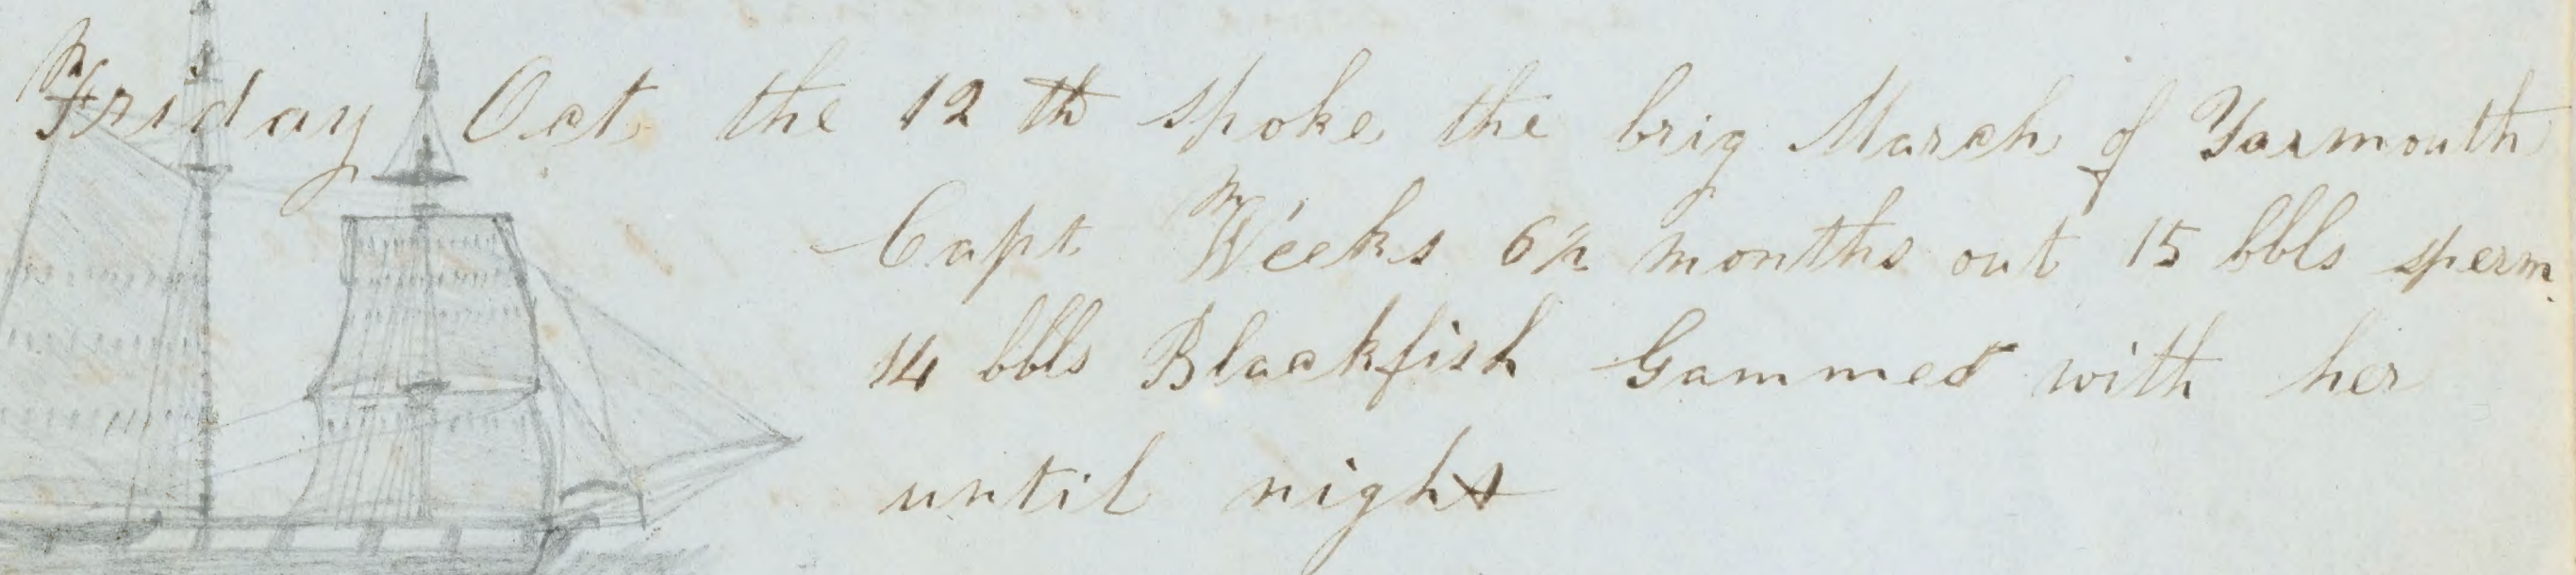 Friday Oct the 12th spoke the brig March of Yarmouth
Capt Weeks 6½ months out 15 bbls sperm
14 bbls Blackfish Gammed with her
until night